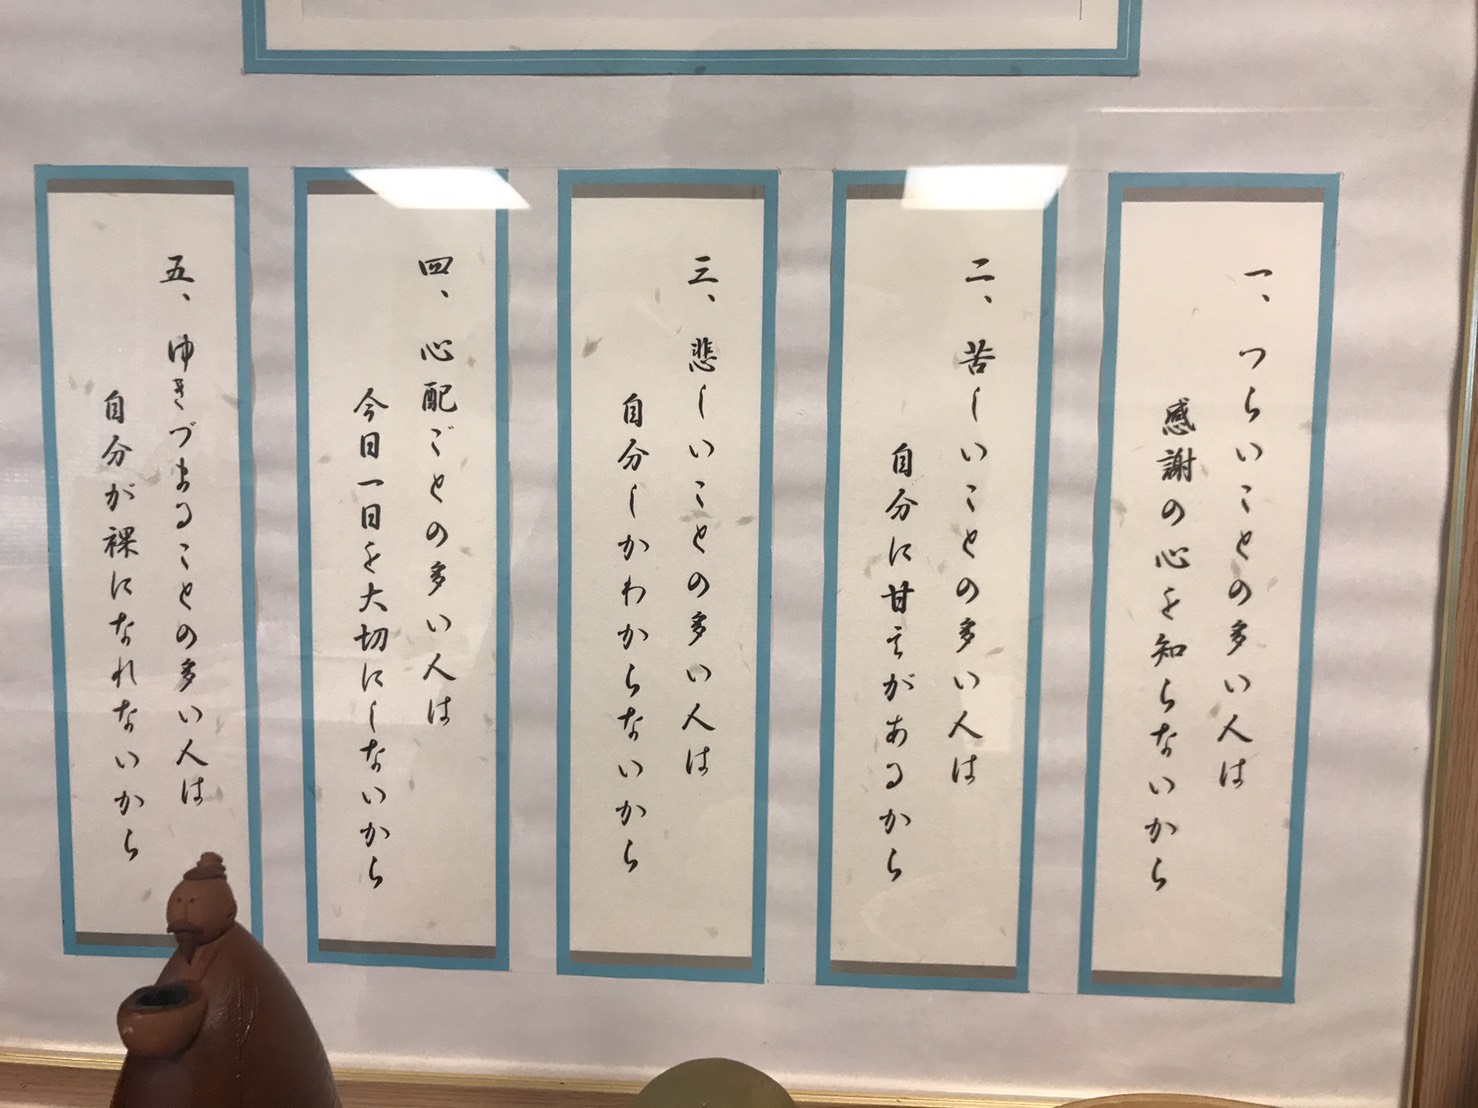 一、つらいことの多い人は
感謝の心を知らないから
二、苦しいことの多い人は
自分に甘えがあるから
三、悲しいことの多い人は
自分しかわからないから
四、心配ごとの多い人は
今日一日を大切にしないから
五、ゆきづまることの多い人は
自分が裸になれないから